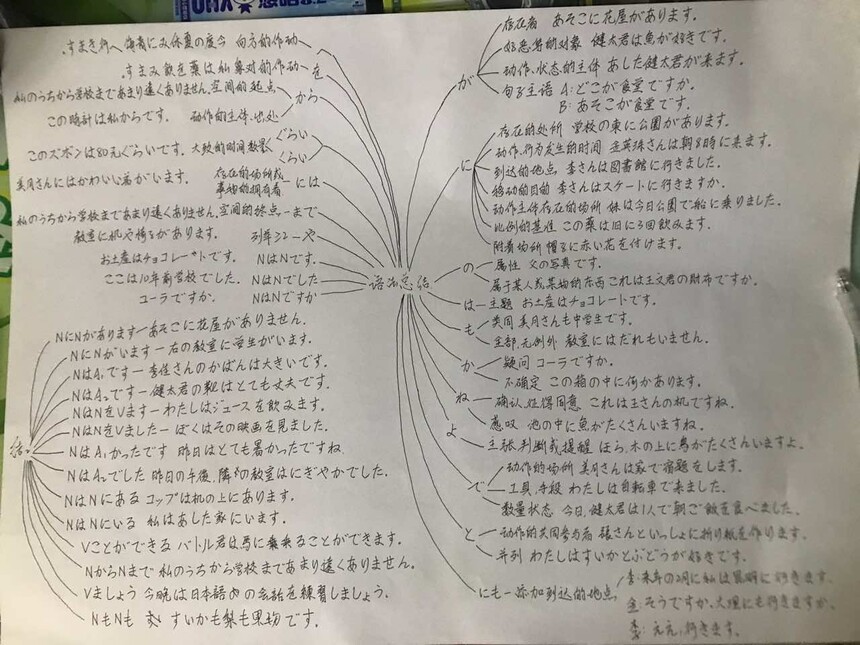 语法总结
が
存在者 あそこに花屋があります。
好恶等的对象 健太君は魚が好きです。
动作、状态的主体 あした健太君が来ます。
句子主语 A:どこが食堂ですか。
B:あそこが食堂です。
に
存在的处所 学校の東に公園があります。
动作、行为发生的时间 さんは朝8時に来ます。
到达的地点 李さんは図書館に行きました。
移动的目的 李さんはスケートに行きますか。
动作主体存在的场所 妹は今日公園で船に乗りました。
比例的基准 この薬は1日に3回飲みます。
附着场所 帽子に赤い花を付けます。
の
属性 父の写真です。
属于某人或某物的东西 これは王文君の財布ですか。
は 主题 お土産はチョコレートです。
も
类同 美月さんも中学生です。
全部,无例外 教室にはだれもいません。
か
疑问 コーラですか。
不确定 この箱の中に何かあります。
ね
确认、征得同意 これは王さんの机ですね。
感叹 池の中に魚がたくさんいますね。
よ 主张、判断或提醒 ほら、木の上に鳥がたくさんいますよ。
で
动作的场所 美月さんは家で宿題をします。
工具、手段 わたしは自転車で来ました。
数量状态 今日、健太君は1人で朝ご飯を食べました。
と
动作的共同参与者 張さんといっしょに折り紙を作ります。
并列 わたしはすいかとぶどうが好きです。
にも 添加到达的地点。
李:来年の2月に私は昆明に行きます。
金:そうですか、大理にも行きますか。
李:ええ、行きます。
へ 动作的方向 今度の夏休みに海南へ行きます。
を 动作的对象 私は薬を飲みます。
から
私のうちから学校まであまり遠くありません。空间的起点
この時計は私からです。 动作的主体、出处
ぐらい
くらい
このズボンは80元ぐらいです。大致的时间数量
には
美月さんにはかわいい弟がいます。 存在的场所或
事物的拥有者
私のうちから学校まであまり遠くありません。空间的终点 まで
教室に机や椅子があります。 列举 や
お土産はチョコレートです。 NはNです。
ここは10年前学校でした。 NはNでした
コーラですか。 NはNですか
NにNがあります あそこに花屋がありません。
NにNがいます 右の教室に学生がいます。
NはA₁です 李佳さんのかばんは大きいです。
NはA₂です 健太君の靴はとても丈夫です。
NはNをVます わたしはジュースを飲みます。
NはNをVました ぼくはその映画を見ました。
NはA₁かったです 昨日はとても暑かったですね
NはA₂でした 昨日の午後、隣の教室はにぎやかでした。
NはNにある コップは机の上にあります。
NはNにいる 私はあした家にいます。
Vことができる バトル君は馬に乗ることができます。
NからNまで 私のうちから学校まであまり遠くありません。
Vましょう 今晩は日本語の会話を練習しましょう。
NもNも すいかも梨も果物です。